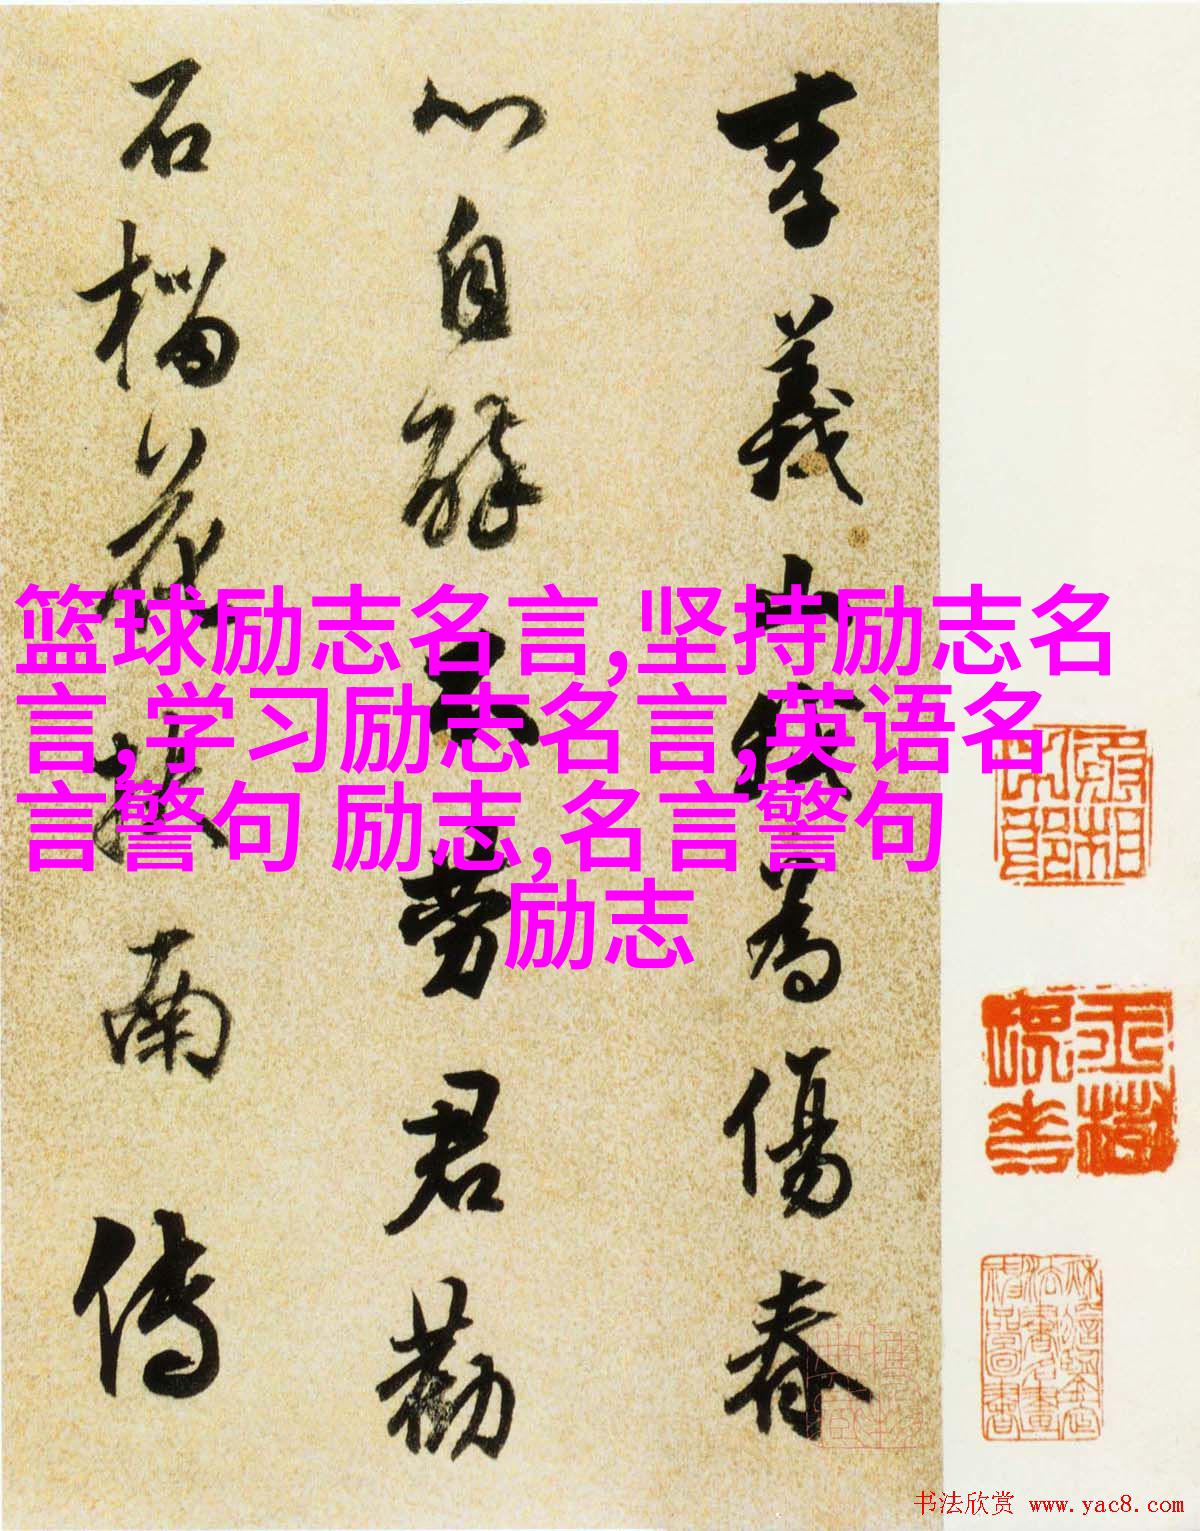 李義山我為傷春
心自醉不勞君勸
石榴花南傳
篮球励志名言,坚持励志名
言,学习励志名言,英语名
言警句 励志,名言警句
励志
书法欣赏 www.yac8.com